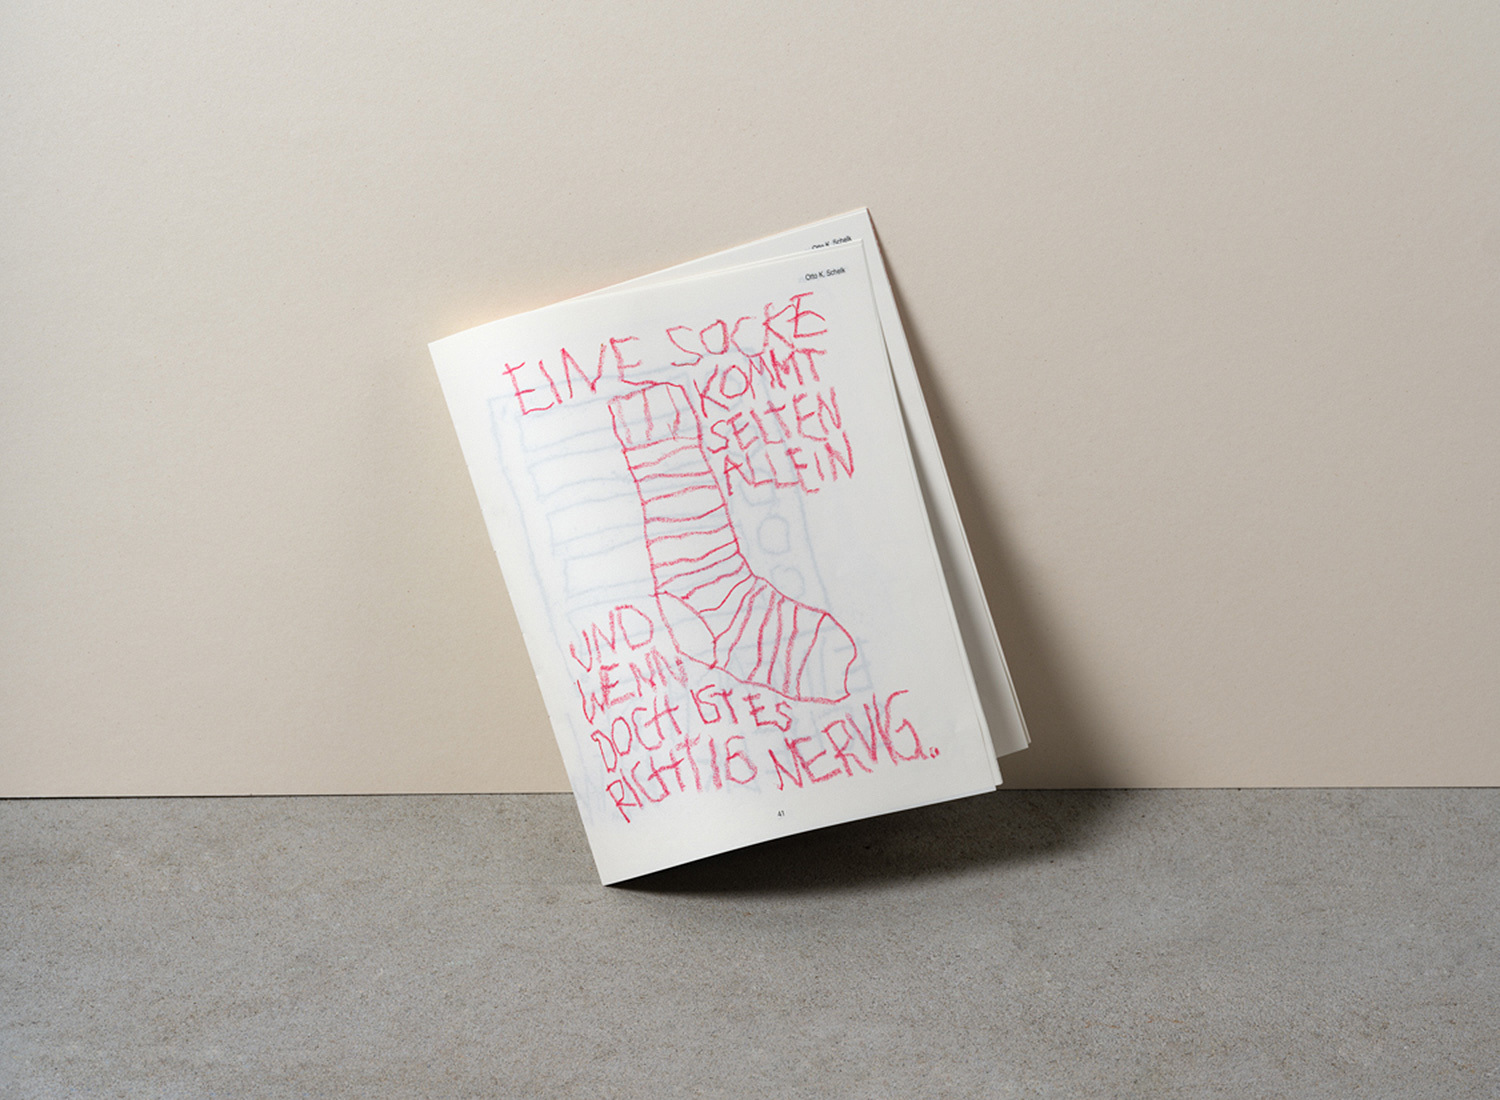 Otto K. Schelk
Otto K. Schelk
EINE SOCKE
KOMMT
SELTEN
ALLEIN
UND
WENN
DOCH IST ES
RICHTIG NERVIG..
41